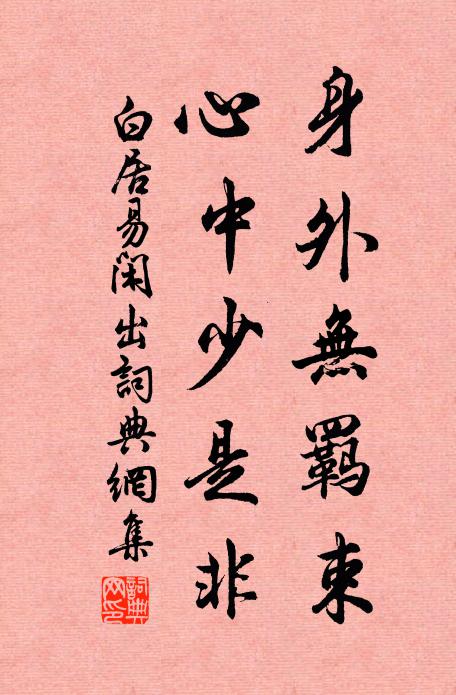 身外無羁束
心中少是非
白居易閑出詞典網集
詞典網印